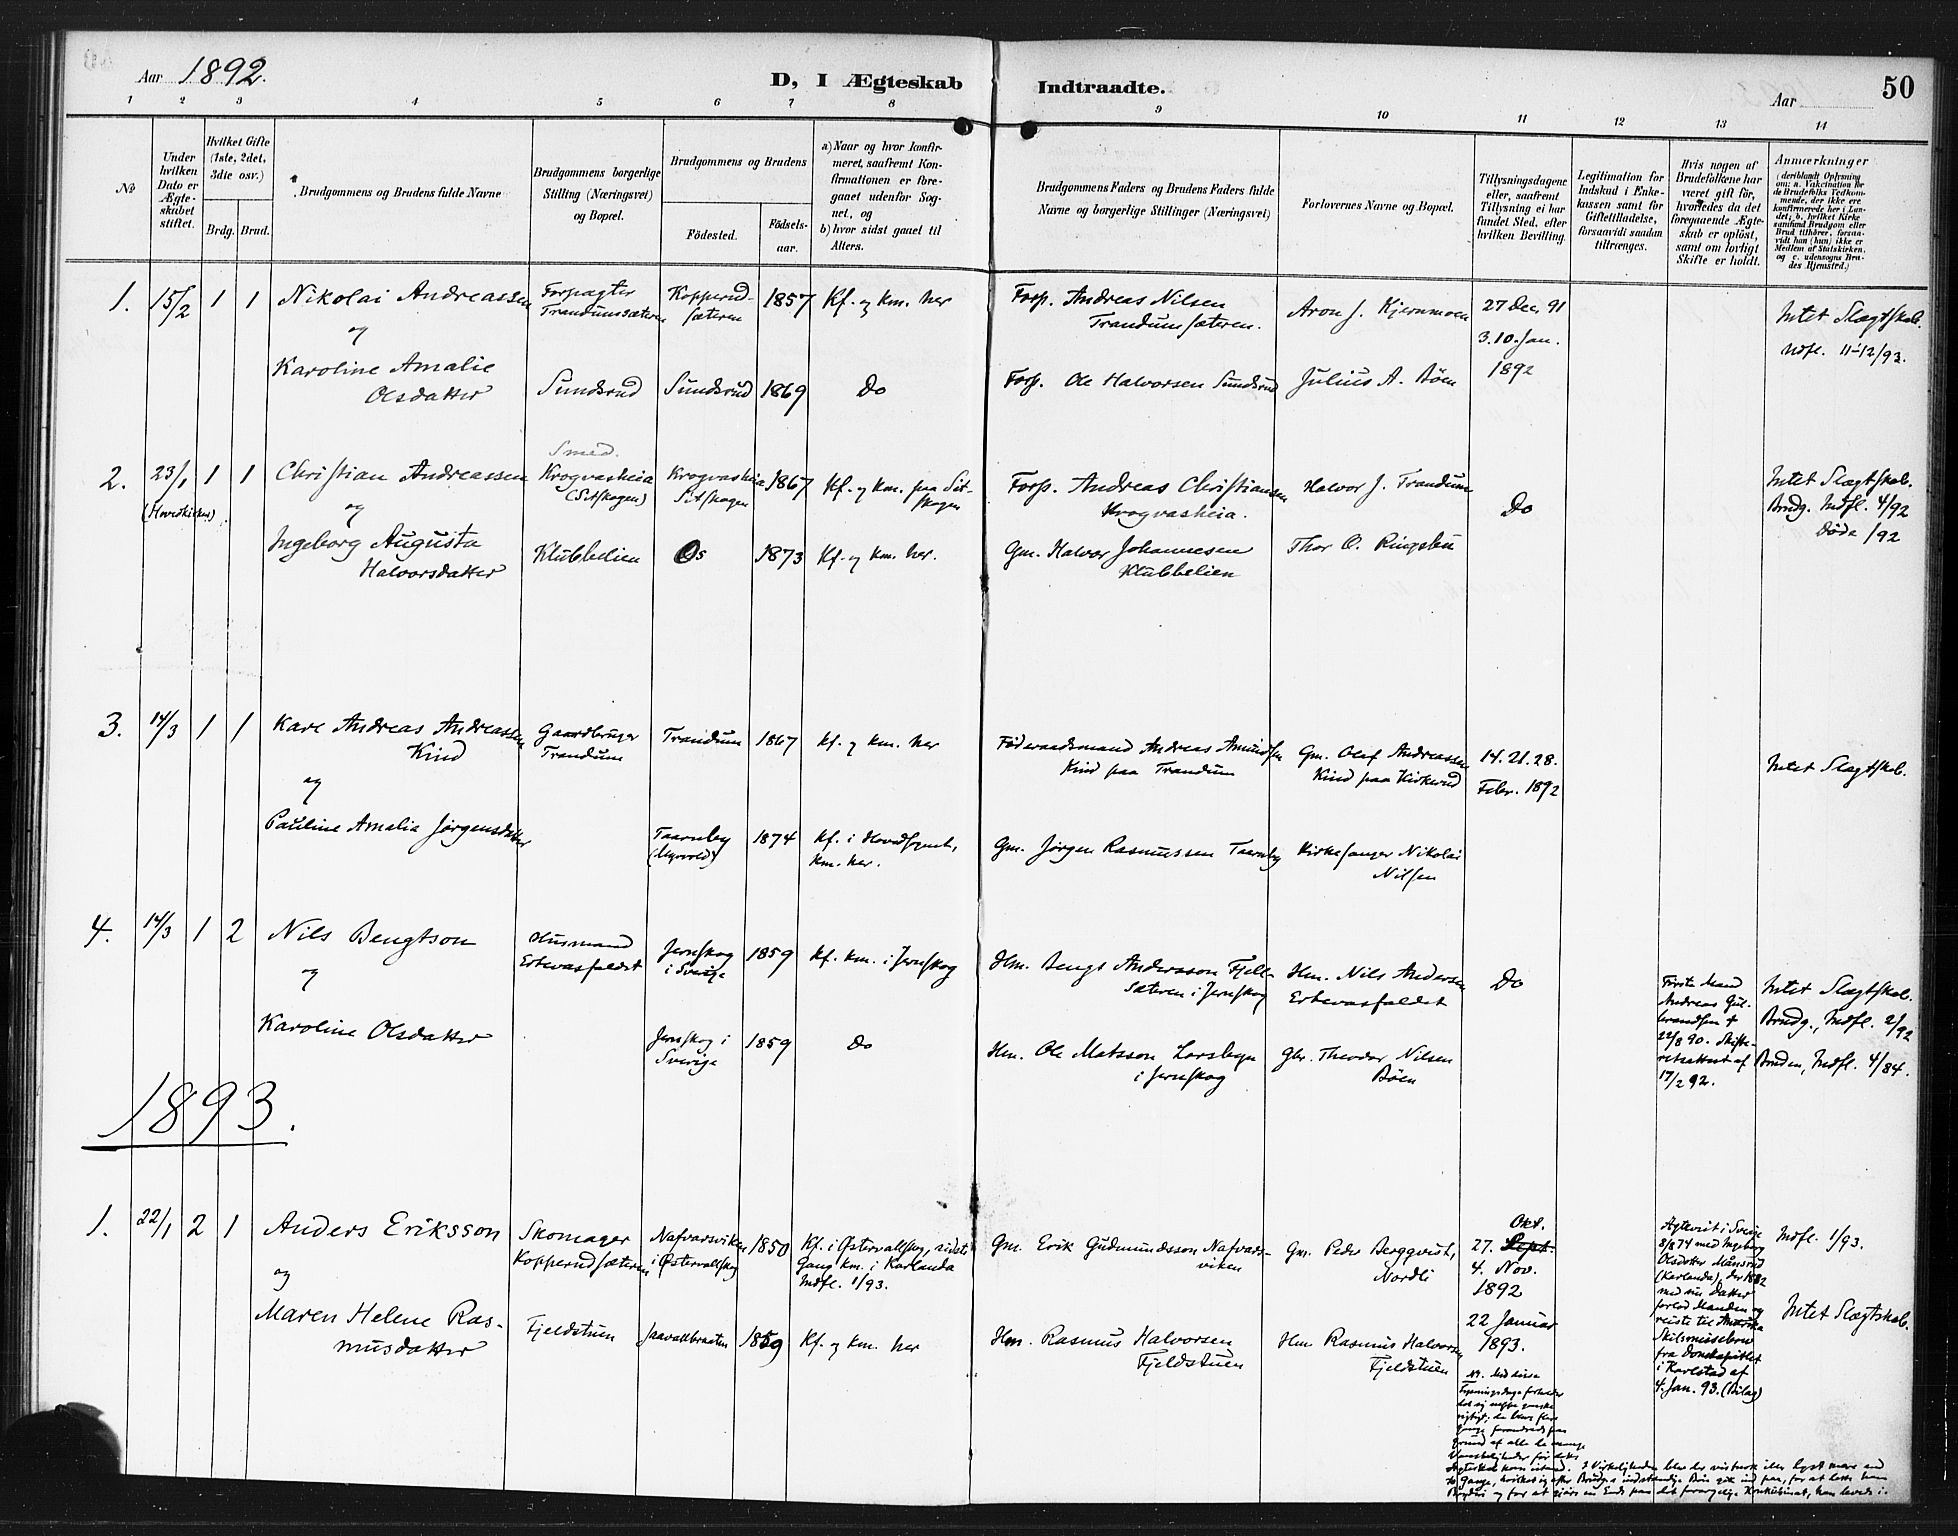 Aar 1892.
D, I Ægteskab Indtraadte.
Aar
50
1 2 3 4 5 6 7 8 9 10 11 12 13 14
No
Under hvilken Dato er Ægteskabet stiftet.
Hvilket Gifte (1ste, 2det, 3die osv.)
Brdg. Brud.
Brudgommens og Brudens fulde Navne
Brudgommens borgerlige Stilling (Næringsvei) og Bopæl.
Brudgommens og Brudens
Fødested.
Fødselsaar.
a) Naar og hvor konfirmeret, saafremt Konfirmationen er foregaaet udenfor Sognet, og
b) hvor sidst gaaet til Alters.
Brudgommens Faders og Brudens Faders fulde Navne og borgerlige Stillinger (Næringsvei)
Forlovernes Navne og Bopæl.
Tillysningsdagene eller, saafremt Tillysning ei har fundet Sted, efter hvilken Bevilling.
Legitimation for Indskud i Enkekassen samt for Giftetilladelse, forsaavidt saadan tiltrænges.
Hvis nogen af Brudefolkene har været gift før, hvorledes da det foregaaende Ægteskab er opløst, samt om lovligt Skifte er holdt.
Anmærkninger
(deriblandt Oplysning om: a. Vakcination for de Brudefolks Vedkommende, der ikke ere konfirmerede her i Landet; b. hvilket Kirkesamfund Brudgom eller Brud tilhører, forsaavidt han (hun) ikke er Medlem af Statskirken, og c. udensogns Brudes Hjemsted.)
1. 15/2 1 1 Nikolai Andreassen
Forpagter Trandumsæteren
Kopperudsæteren 1857 Kf. og km. her
Forp. Andreas Nilsen Trandumsæteren.
Aron J. Kjernmoen
27 Dec. 91
3. 10. Jan.
1892
Intet Slægtskab.
Indfl. 11-12/93.
og
Karoline Amalie Olsdatter
Sundsrud Sundsrud 1869 Do
Forp. Ole Halvorsen Sundsrud
Julius A. Böen
2. 23/1 1 1 Christian Andreassen
(Hovedkirken)
Smed.
Krogvasheia (Setskogen)
Krogvasheia Setskogen 1867 Kf. og km. paa Setskogen
Forp. Andreas Christiansen Krogvasheia.
Halvor J. Trandum
Do
Intet Slægtskab.
Brudg. Indfl. 4/92
Døde /92
og
Ingeborg Augusta Halvorsdatter
Klubbelien Os 1873 Kf. og km. her.
Gm. Halvor Johannesen Klubbelien
Thor O. Ringsbu
3. 14/3 1 1 Karl Andreas Andreassen Kind
Gaardbruger Trandum
Trandum 1867 Kf. og km. her
Föderaadsmand Andreas Amundsen Kind paa Trandum
Gm. Olaf Andreassen Kind paa Kirkerud
14. 21. 28.
Febr. 1892
Intet Slægtskab.
og
Pauline Amalia Jørgensdatter
Taarnby 1874 Kf. i Hovedsognet, km. her.
Gm. Jørgen Rasmussen Taarnby
Kirkesanger Nikolai Nilsen
4. 14/3 1 2 Nils Bengtson
Husmand Ertevasfaldet
Jernskog i Sverige 1859 Kf. km. i Jernskog
Hm. Bengt Andersson Fjellsæteren i Jernskog
Hm. Nils Andersen Ertevasfaldet
Do
Første Mand Andreas Gulbrandsen † 22/8 90. Skifteretsattest af 17/2 92.
Intet Slægtskab.
Brudg., Indfl. 2/92
Bruden, Indfl. 4/84.
og
Karoline Olsdatter
Jernskog i Sverige 1859 Do
Hm. Ole Matsson Larsbyn i Jernskog
Gbr. Theodor Nilsen Böen
1893.
1. 22/1 2 1 Anders Eriksson
Skomager Kopperudsæteren
Nafvarsviken i Østervallskog 1850
Kf. i Østervallskog, sidste Gang km. i Karlanda
Indfl. 1/93.
Gm. Erik Gudmundsson Nafvarsviken
Gm. Peder Bergqvist, Nordli
Okt.
27. Sept.
4. Nov.
1892
22 Januar
1893.
Ægteviet i Sverige 8/8 74 med Ingeborg Olsdotter Månsrud (Karlanda), der 1882 med sin Datter forlod Manden og reiste til Amerika Skilsmissebrev fra Domkapitlet i Karlstad af 4. Jan. 93. (Bilag)
Indfl. 1/93.
Intet Slægtskab.
og
Maren Helene Rasmusdatter
Fjeldstuen Jaavallbraaten 1859 Kf. og km. her
Hm. Rasmus Halvorsen Fjeldstuen
Hm Rasmus Halvorsen Fjeldstuen